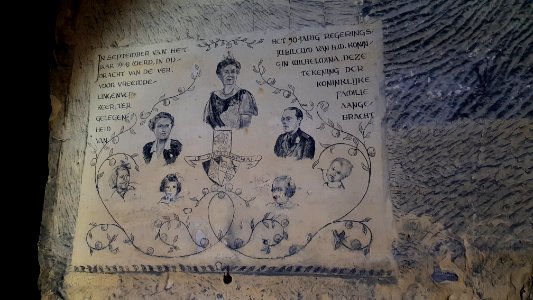 IN SEPTEMBER VAN HET
JAAR 1948 WERD, IN OP-
DRACHT VAN DE VER.
VOOR VREEMDE-
LINGENVER-
KEER, TER
GELEGEN-
HEID
VAN
HET 50-JARIG REGERINGS-
JUBILEUM VAN H.M. KONIN-
GIN WILHELMINA, DEZE
TEKENING DER
KONINKLIJKE
FAMILIE
AANGE-
BRACHT